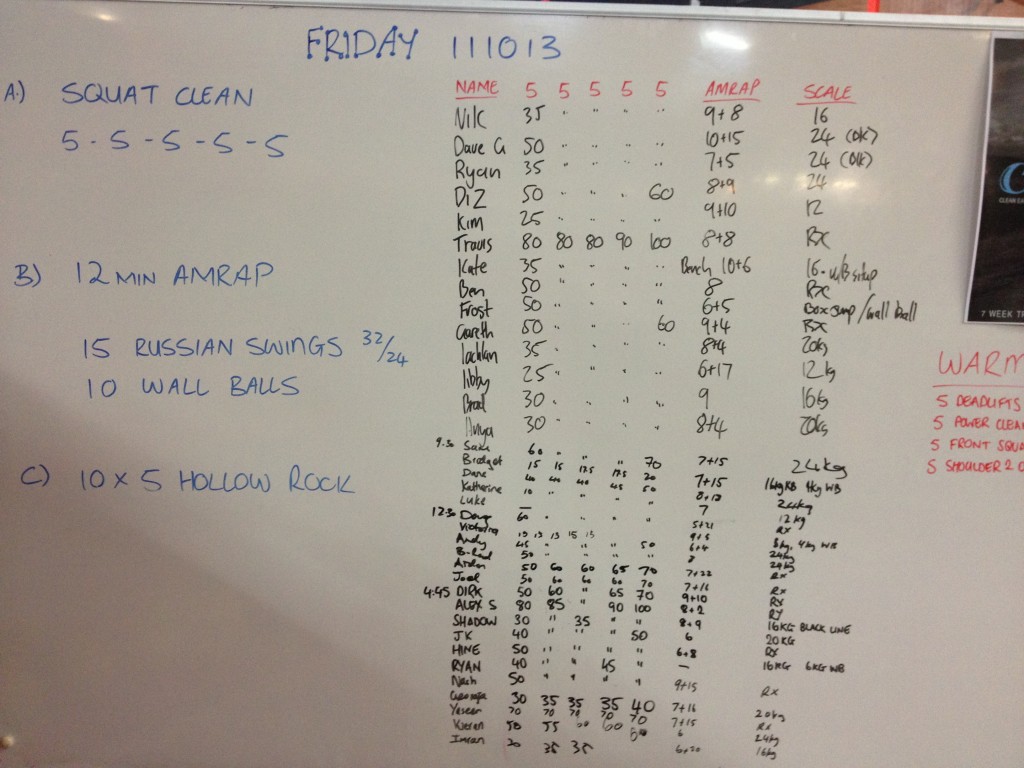 FRIDAY 111013
A.) SQUAT CLEAN
5 - 5 - 5 - 5 - 5
B) 12 MIN AMRAP
15 RUSSIAN SWINGS 32/24
10 WALL BALLS
C) 10 x 5 HOLLOW ROCK
NAME 5 5 5 5 5 AMRAP SCALE
Nik 35 " " " " 9+8 16
Dave G 50 " " " " 10+15 24 (OK)
Ryan 35 " " " " 7+5 24 (OK)
DiZ 50 " " " 60 8+9 24
Kim 25 " " " " 9+10 12
Travis 80 80 80 90 100 8+8 RX
Kate 35 " " " " Bench 10+6 16 - W/B situp
Ben 50 " " " " 8 RX
Frost 50 " " " " 6+5 Box jump/wall ball
Gareth 50 " " " 60 9+4 RX
lachlan 35 " " " " 8+4 20kg
libby 25 " " " " 6+17 12kg
Brad 30 " " " " 9 16kg
30 " " " " 8+4 20kg
9.30 60 " " " 70 7+15 24kg
Bridget 15 15 17.5 17.5 20 7+15 14kgKB 4kg WB
Dane 40 40 40 45 50
Katherine 10 " " " "
LUKE 7
12:30 Doug 60 " " "
Victoria 15 15 15 15 15
Andy 45 " " " 50
B-Rad 50 " " " "
50 60 60 65 70 7+22
Joel 50 60 60 60 70 7+16 RX
4:45 DIRK 50 60 " 65 70 9+10 RX
ALEX S 80 85 " 90 100 8+2 RX
SHADOW 30 " 35 " " 8+9 16KG BLACK LINE
JK 40 " " " 50 6 20KG
HINE 50 " " " " 6+8 RX
RYAN 40 " " 45 " — 16KG 6KG WB
Nach 50 " " " " 9+15 RX
Georgia 30 35 35 35 40 7+16 20kg
Yaseen 70 70 70 70 70 7+15 RX
Kieran 50 55 60 60 6 24kg
Imran 20 35 35 6+20 16kg
7 WEEK
CLEAN
WARM
5 DEADLIFTS
5 POWER CLEA
5 FRONT SQUA
5 SHOULDER 2 O